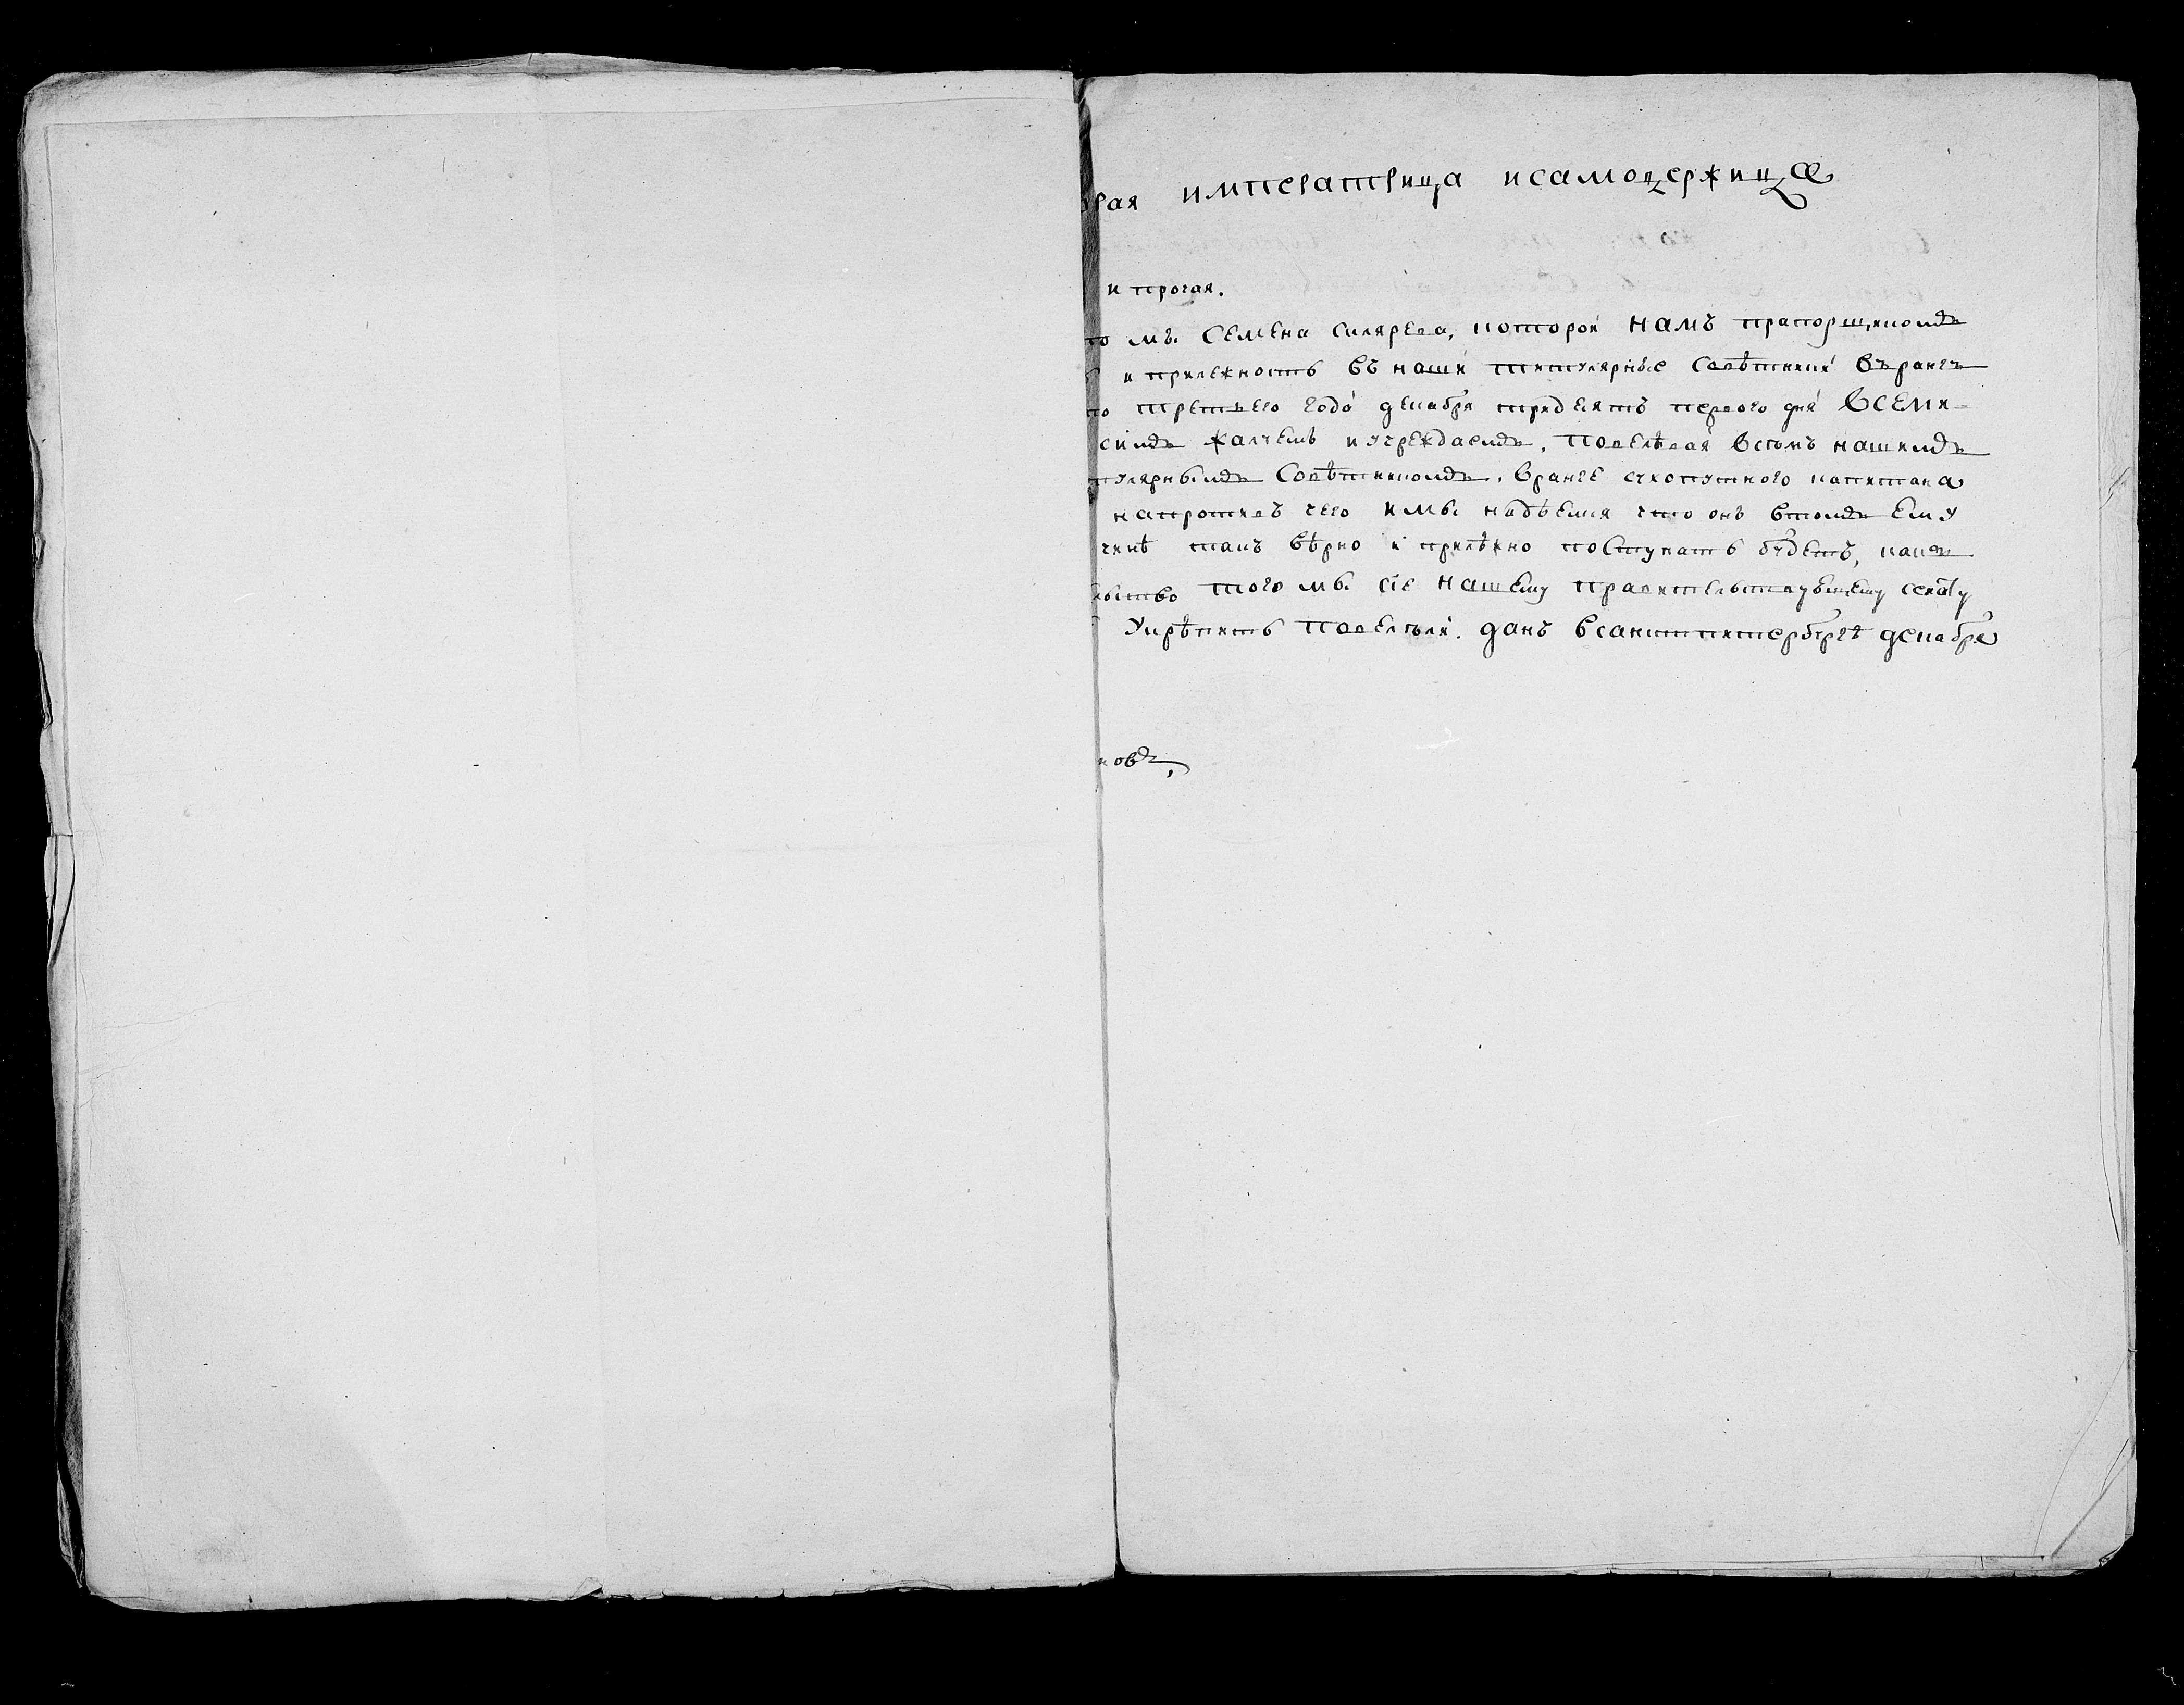 рая императрица исамодержица
и прочая.
то мы Семена Склярева, которой намъ прапорщикомъ
и прилежность въ наши титулярные Совѣтники Въ рангъ
то третьего года декабря тридеятъ первого дня Всеми-
симъ жалуемъ иучреждаемъ, повелѣвая всѣмъ нашимъ
тулярнымъ Совѣтникомъ, вранге сухопутного капитана
напротивъ чего имы надѣемся что онъ втомъ Ему
чинѣ такъ вѣрно и прилѣжно поступать будетъ, какъ
льство того мы сіе нашему правительствующему сенату
Укрѣпить повелѣли. данъ всанктпитербургѣ декабря
новъ,